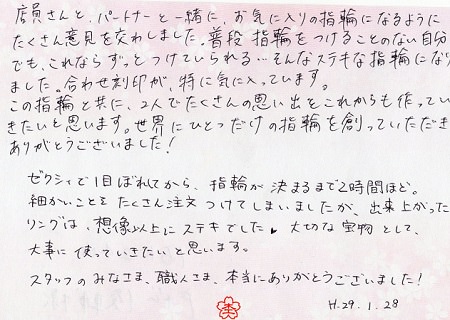 店員さんと、パートナーと一緒に、お気に入りの指輪になるように
たくさん意見を交わしました。普段 指輪をつけることのない自分
でも、これならずっとつけていられる…そんなステキな指輪になり
ました。合わせ刻印が、特に気に入っています。
この指輪と共に、2人でたくさんの思い出をこれからも作ってい
きたいと思います。世界にひとつだけの指輪を創っていただき
ありがとうございました!
ゼクシィで1目ぼれしてから、指輪が 決まるまで2時間ほど。
細かいことをたくさん注文 つけてしまいましたが、出来上がった
リングは、想像以上に ステキでした。大切な宝物 として、
大事に 使っていきたいと思います。
スタッフのみなさま、職人さま、本当にありがとうございました!
H.29.1.28